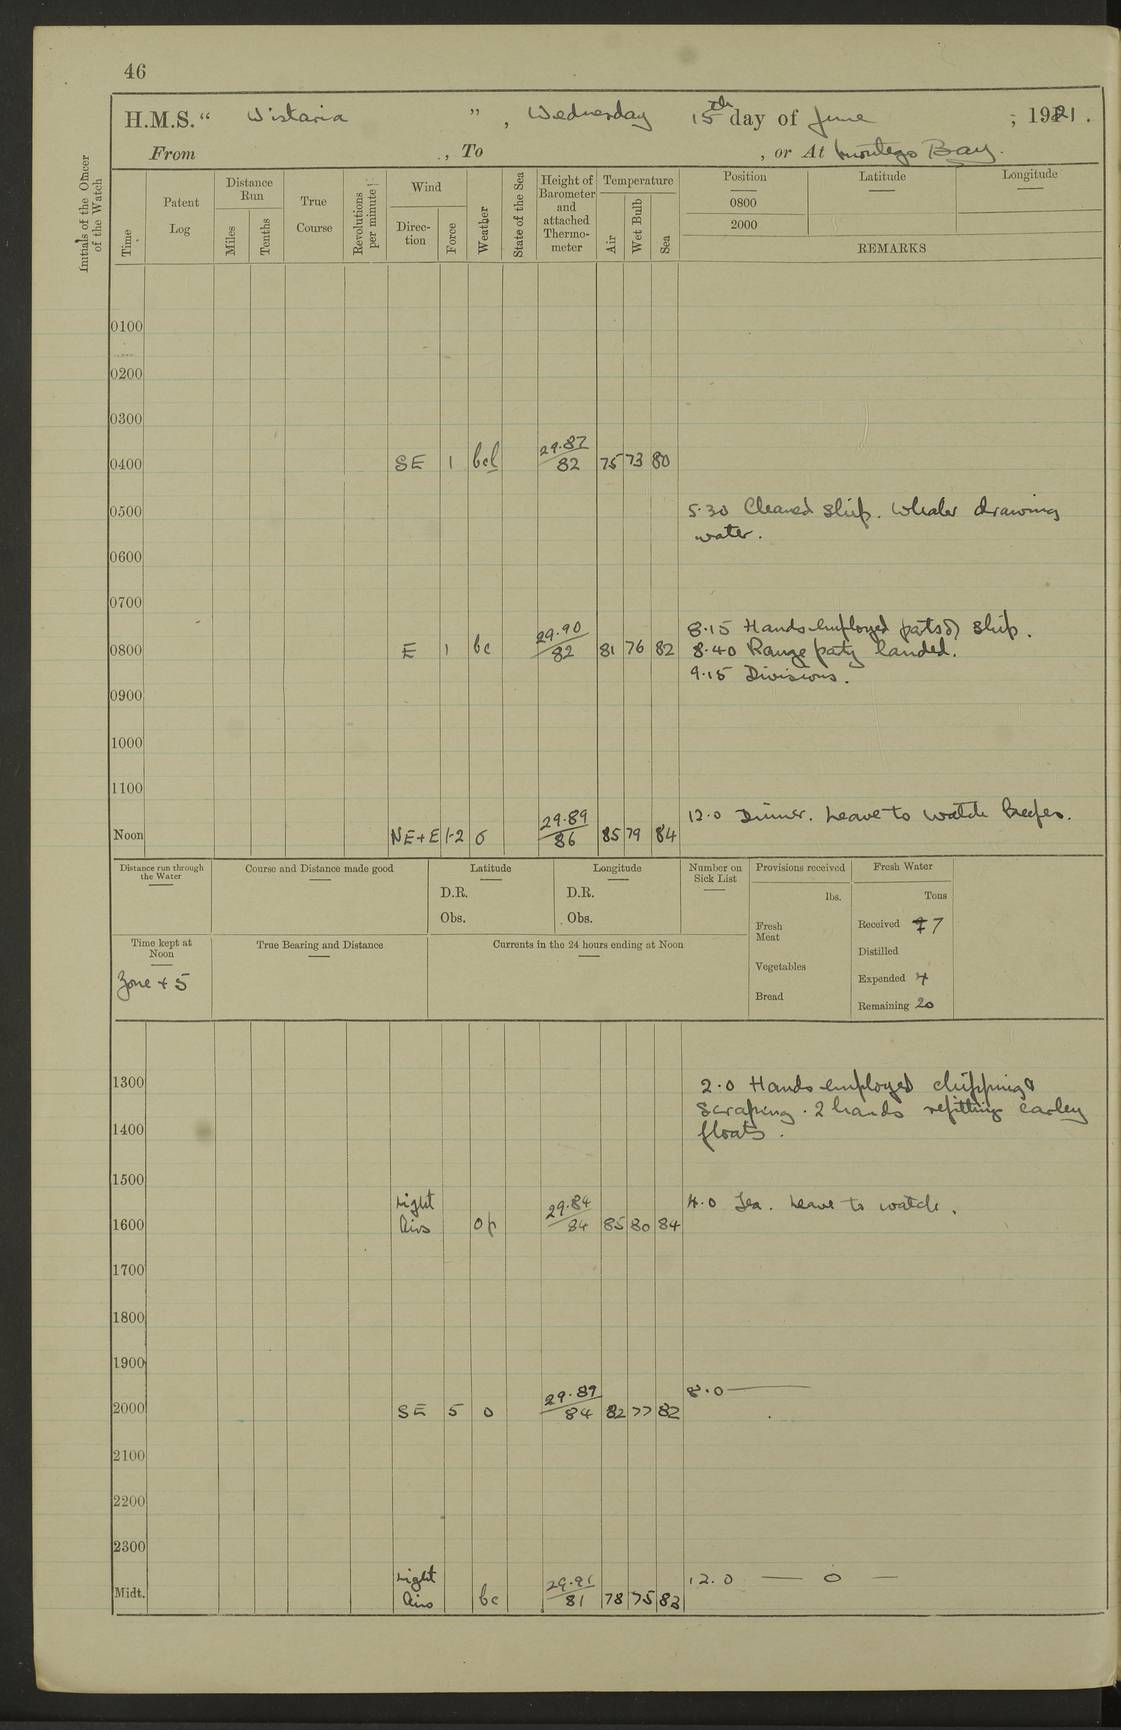 46
H.M.S. “ Wistaria ” , Wednesday 15th day of June , 1921 .
From , To , or At Montego Bay.
Initials of the Officer of the Watch
Time
Patent Log
Distance Run
Miles
Tenths
True Course
Revolutions per minute
Wind
Direction
Force
Weather
State of the Sea
Height of Barometer and attached Thermometer
Temperature
Air
Wet Bulb
Sea
Position Latitude Longitude
0800
2000
REMARKS
0100
0200
0300
0400 SE 1 bcl 29.87/82 75 73 80
0500 5.30 Cleaned Ship. Whaler drawing
water.
0600
0700
8.15 Hands employed pts of Ship.
0800 E 1 bc 29.90/82 81 76 82 8.40 Range party landed.
9.15 Divisions.
0900
1000
1100
12.0 Dinner. Leave to watch
Noon NE+E 1-2 o 29.89/86 85 79 84
Distance run through the Water
Course and Distance made good
Latitude
D.R.
Obs.
Longitude
D.R.
Obs.
Number on Sick List
Provisions received
lbs.
Fresh Meat
Vegetables
Bread
Fresh Water
Tons
Received 7
Distilled
Expended 4
Remaining 20
Time kept at Noon
Zone + 5
True Bearing and Distance
Currents in the 24 hours ending at Noon
1300 2.0 Hands employed chipping &
scraping. 2 hands refitting carley
1400 floats.
1500
Light 4.0 Tea. Leave to watch.
1600 Airs op 29.84/84 85 80 84
1700
1800
1900
8.0 ——
2000 SE 5 o 29.89/84 82 77 82
2100
2200
2300
Light 12.0 — o —
Midt. Airs bc 29.91/81 78 75 82